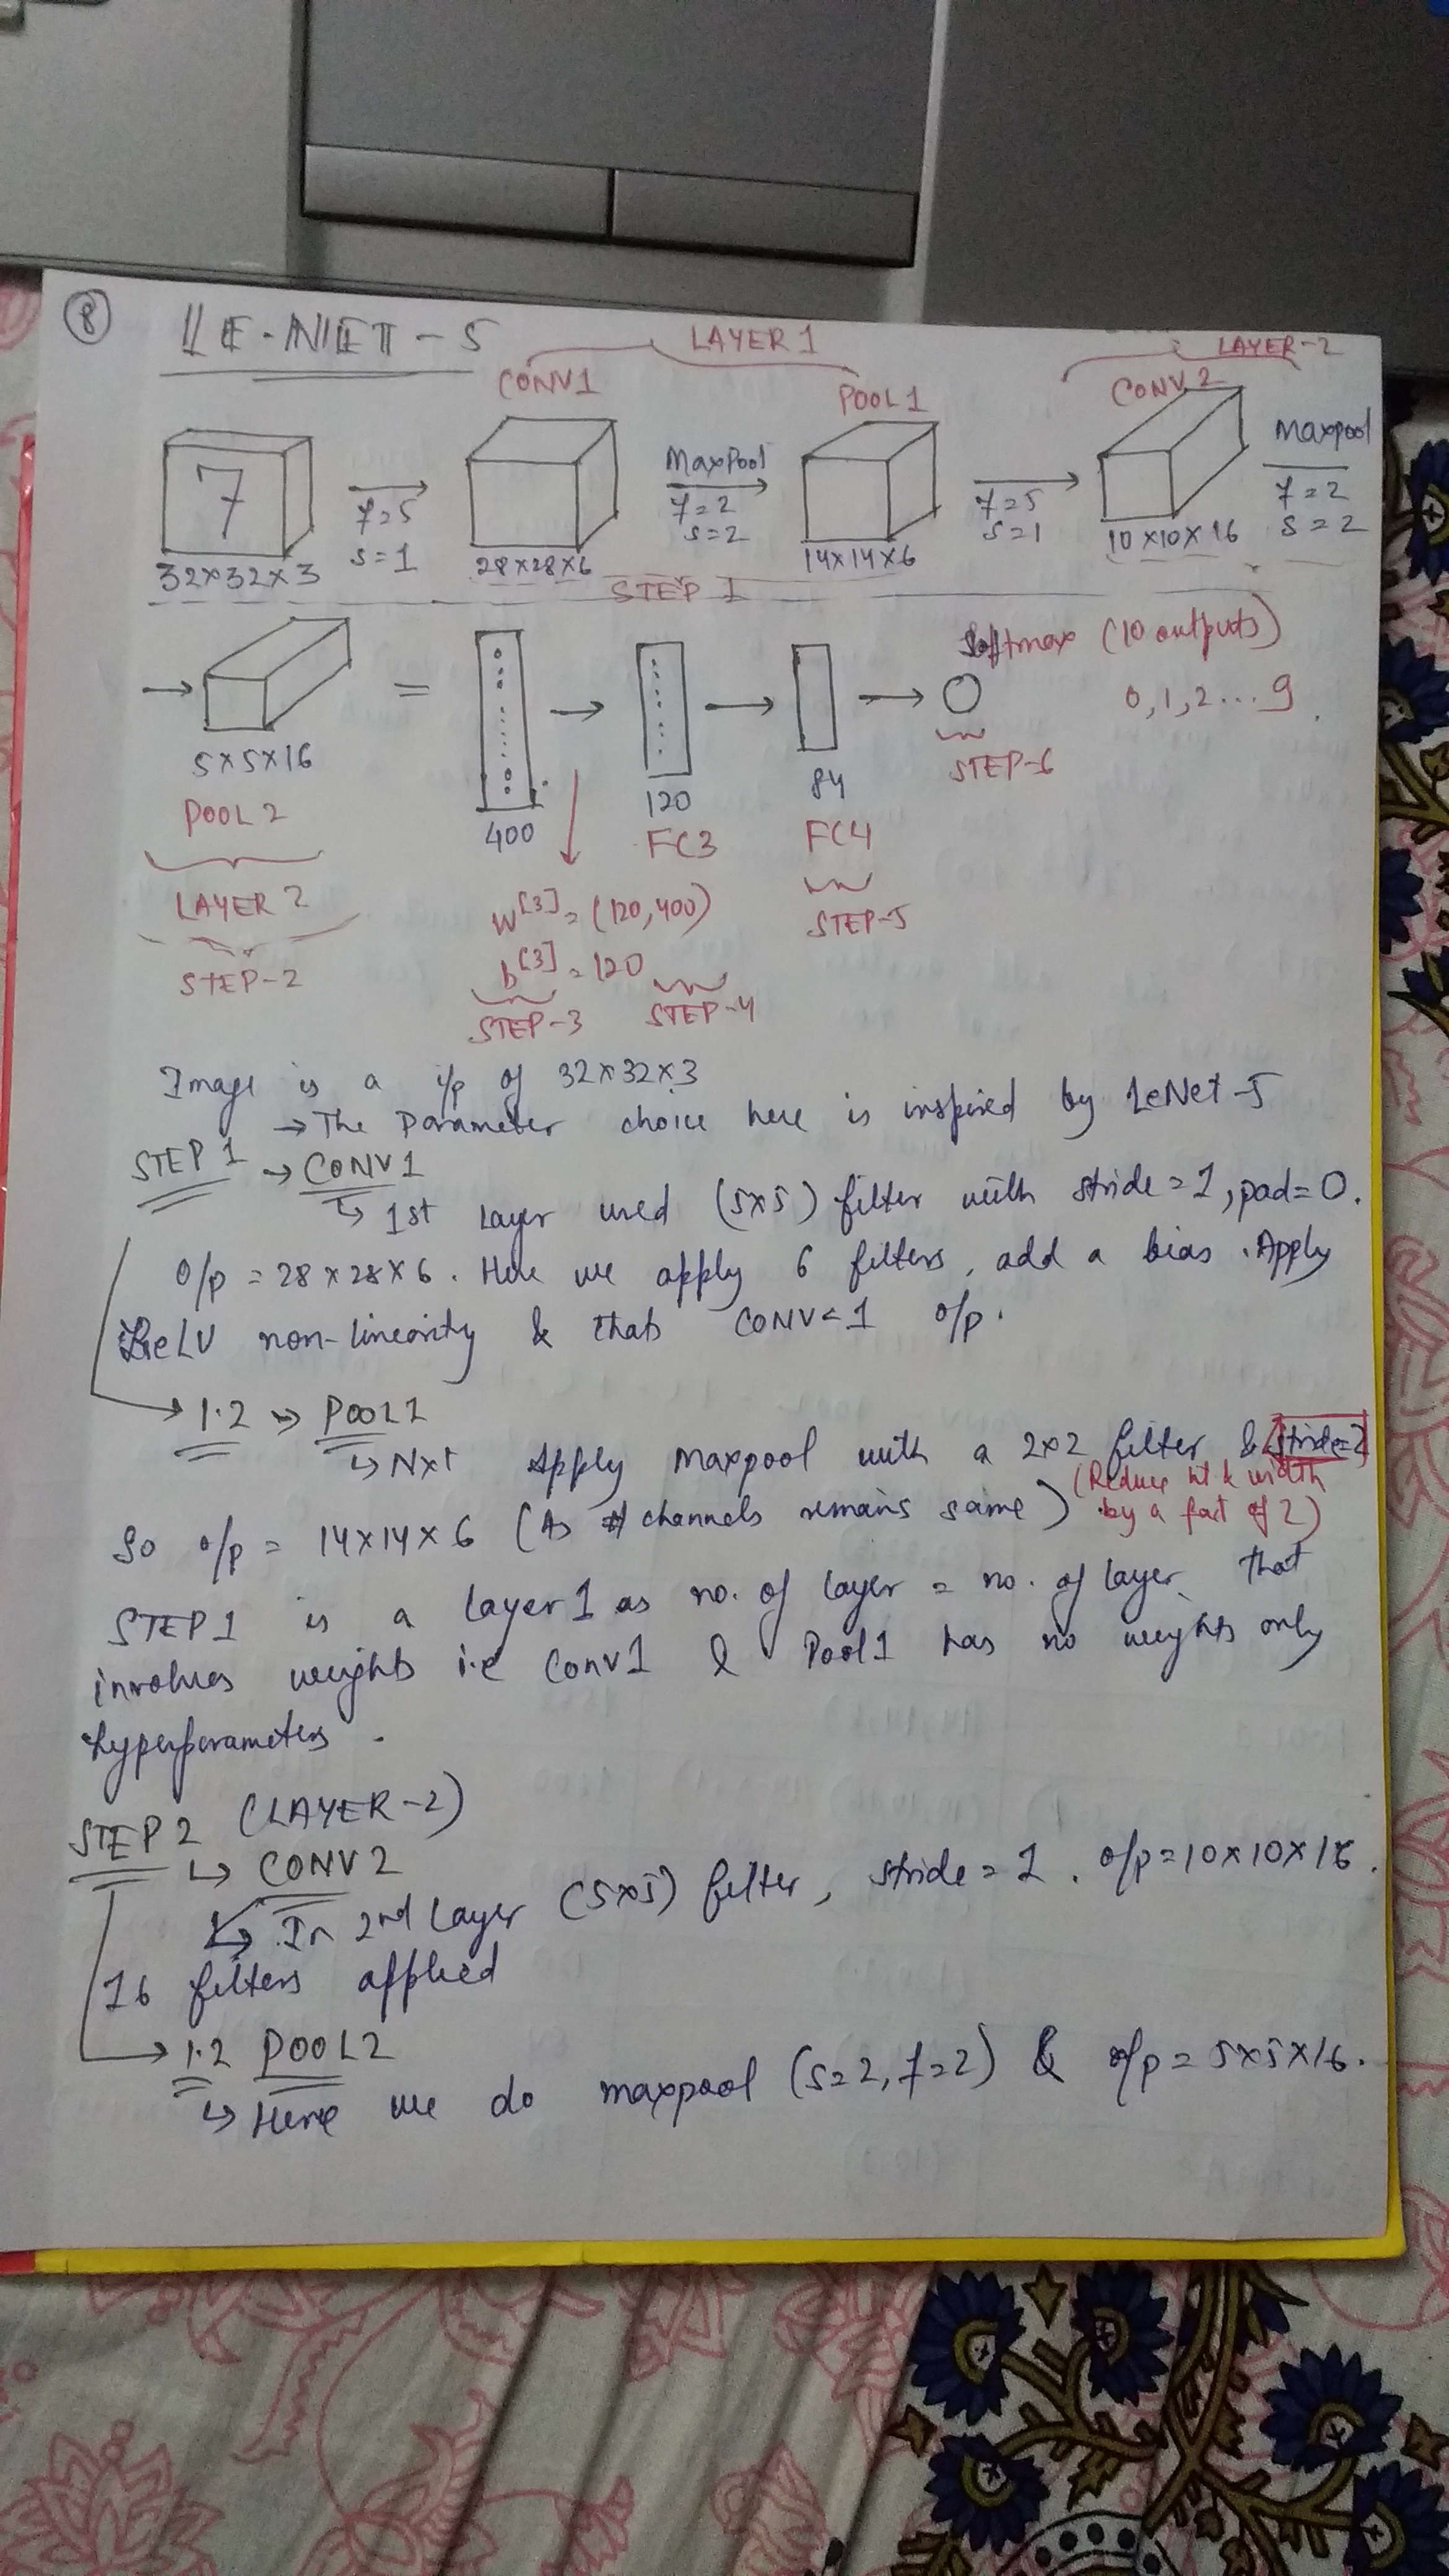 8
LE-NET-5
LAYER 1
LAYER-2
CONV1
POOL1
CONV2
7
f=5
s=1
MaxPool
f=2
s=2
f=5
s=1
Maxpool
f=2
s=2
32×32×3
28×28×6
14×14×6
10×10×16
STEP 1
Softmax (10 outputs)
0,1,2...9
=
5×5×16
POOL2
LAYER 2
STEP-2
400
120
FC3
84
FC4
STEP-5
STEP-6
W[3] = (120,400)
b[3] = 120
STEP-3
STEP-4
Image is a i/p of 32×32×3
→ The parameter choice here is inspired by LeNet-5
STEP 1 → CONV1
↳ 1st Layer used (5×5) filter with stride=1, pad=0.
o/p = 28×28×6. Here we apply 6 filters, add a bias. Apply
ReLU non-linearity & thats CONV=1 o/p.
→ 1.2 → POOL1
↳ Nxt Apply Maxpool with a 2×2 filter & stride=2
(Reduce ht & width
by a fact of 2)
So o/p = 14×14×6 (As # channels remains same)
STEP1 is a Layer1 as no. of layer = no. of layer that
involves weights i.e Conv1 & Pool1 has no weights only
hyperparameters.
STEP 2 (LAYER-2)
↳ CONV2
↳ In 2nd Layer (5×5) filter, stride=1. o/p=10×10×16.
16 filters applied
→ 1.2 POOL2
↳ Here we do maxpool (s=2, f=2) & o/p = 5×5×16.